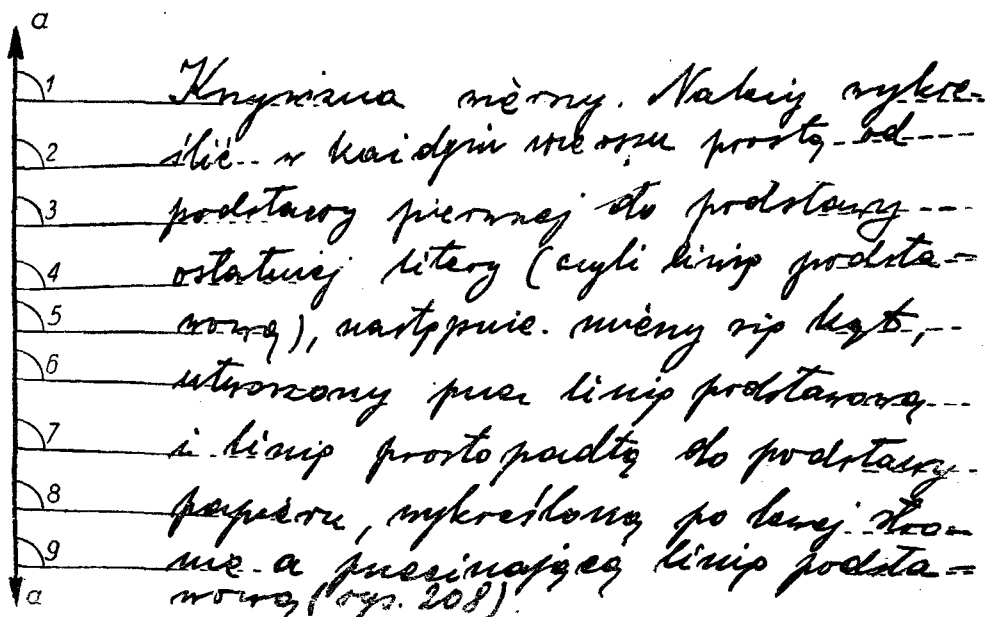 a
1 Krzywizna wierszy. Należy wykre-
2 ślić w każdym wierszu prostą od
3 podstawy pierwszej do podstawy
4 ostatniej litery (czyli linię podsta=
5 wową), następnie mierzy się kąt,
6 utworzony przez linię podstawową
7 i linię prostopadłą do podstawy
8 papieru, wykreśloną po lewej stro=
9 nie a przecinającą linię podsta=
a wową (rys. 208)